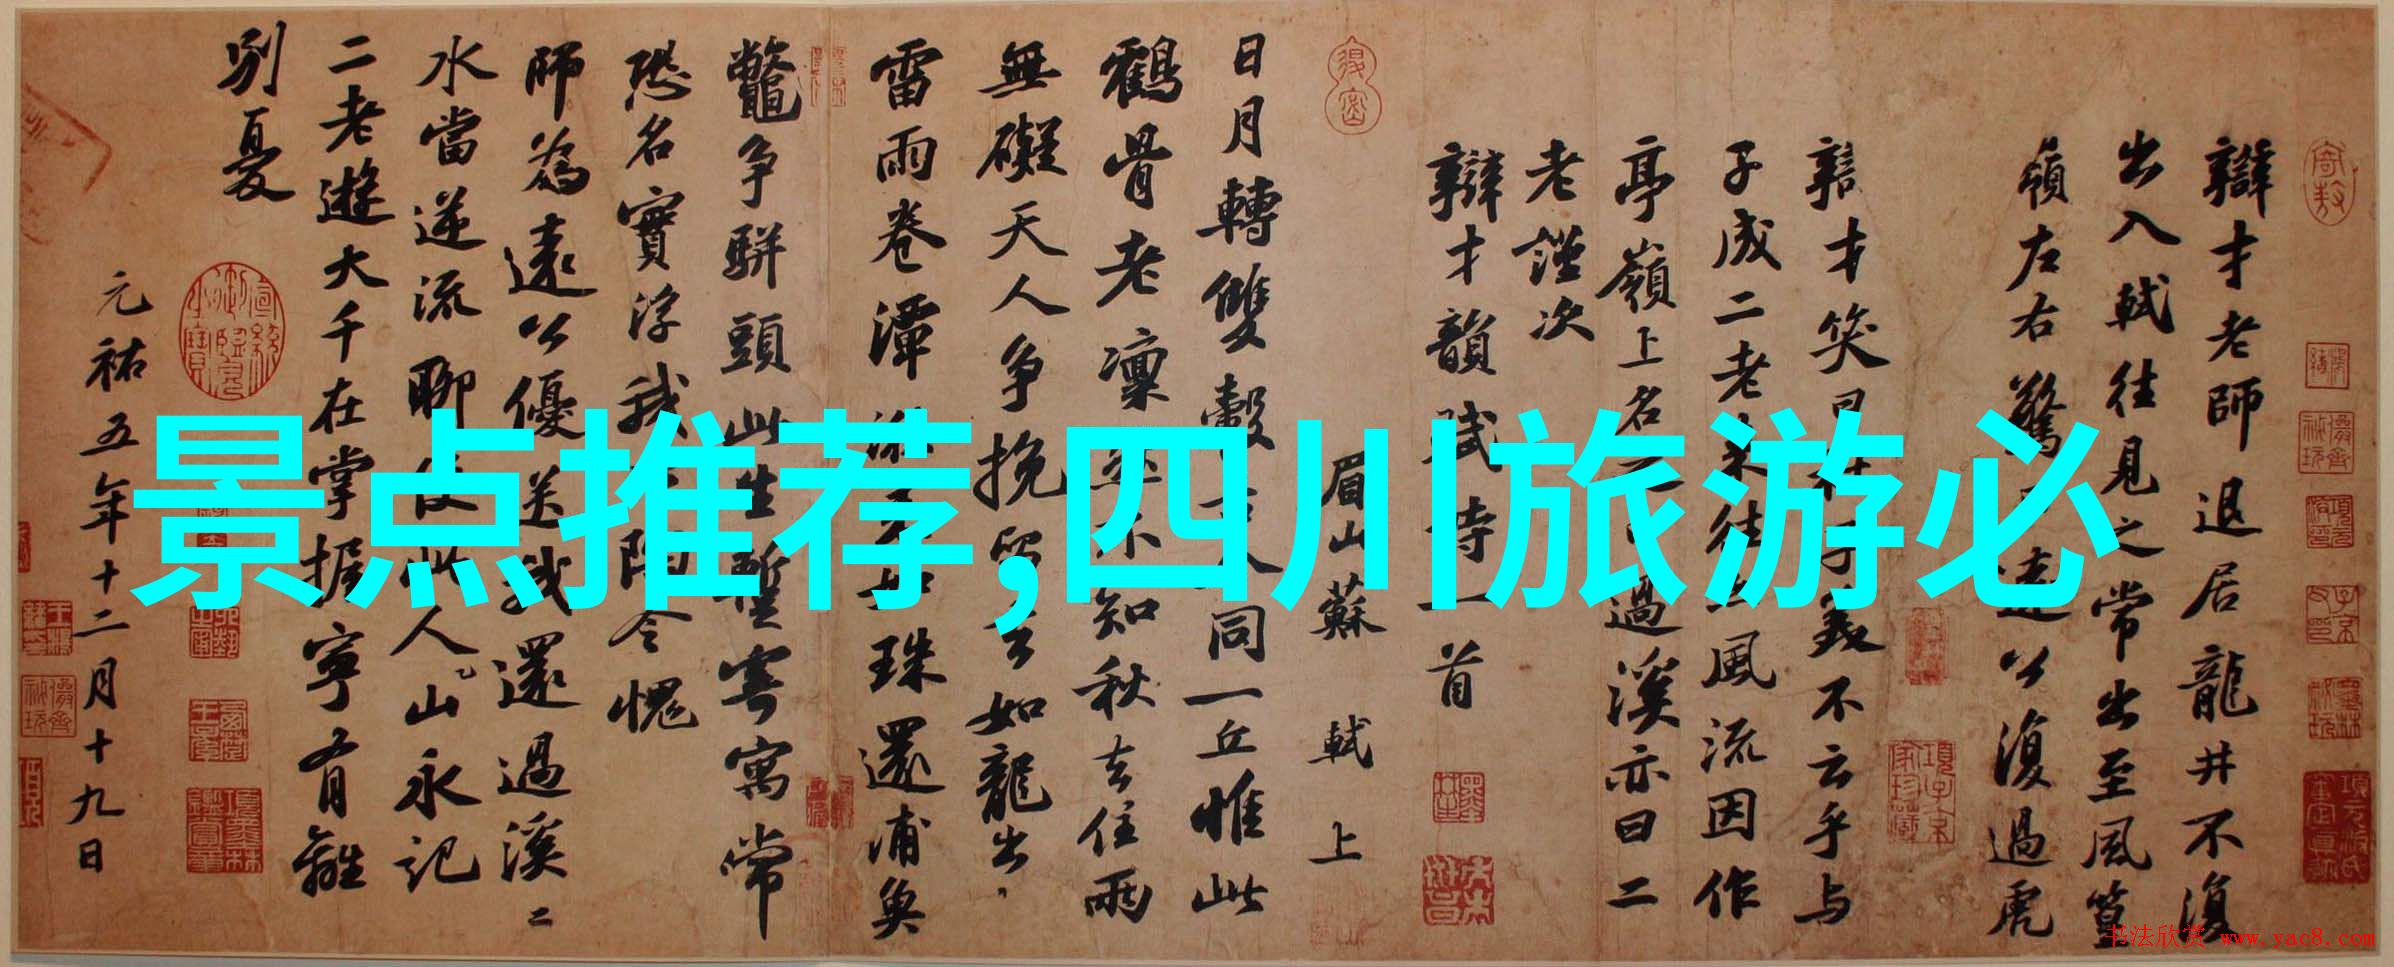 景点推荐,四川旅游必
辯才老師退居龍井不復
出入軾往見之常出至風篁
嶺左右驚曰遠公復過虎
辯才笑曰子美不云乎与
子成二老来往亦風流因作
亭嶺上名之曰過溪亦曰二
老謹次
辯才韻賦詩一首
眉山蘇 軾 上
日月轉雙轂古今同一丘惟此
鶴骨老凜然不知秋去住兩
無礙天人争挽留去如龍出
雷雨卷潭湫来如珠還浦魚
鼈争駢頭此生暫寄寓常
恐名實浮我比陶令愧
師為遠公優送我還過溪
水當逆流聊使此人山永記
二老遊大千在掌握寧有離
別憂
元祐五年十二月十九日
书法欣赏 www.yac8.com